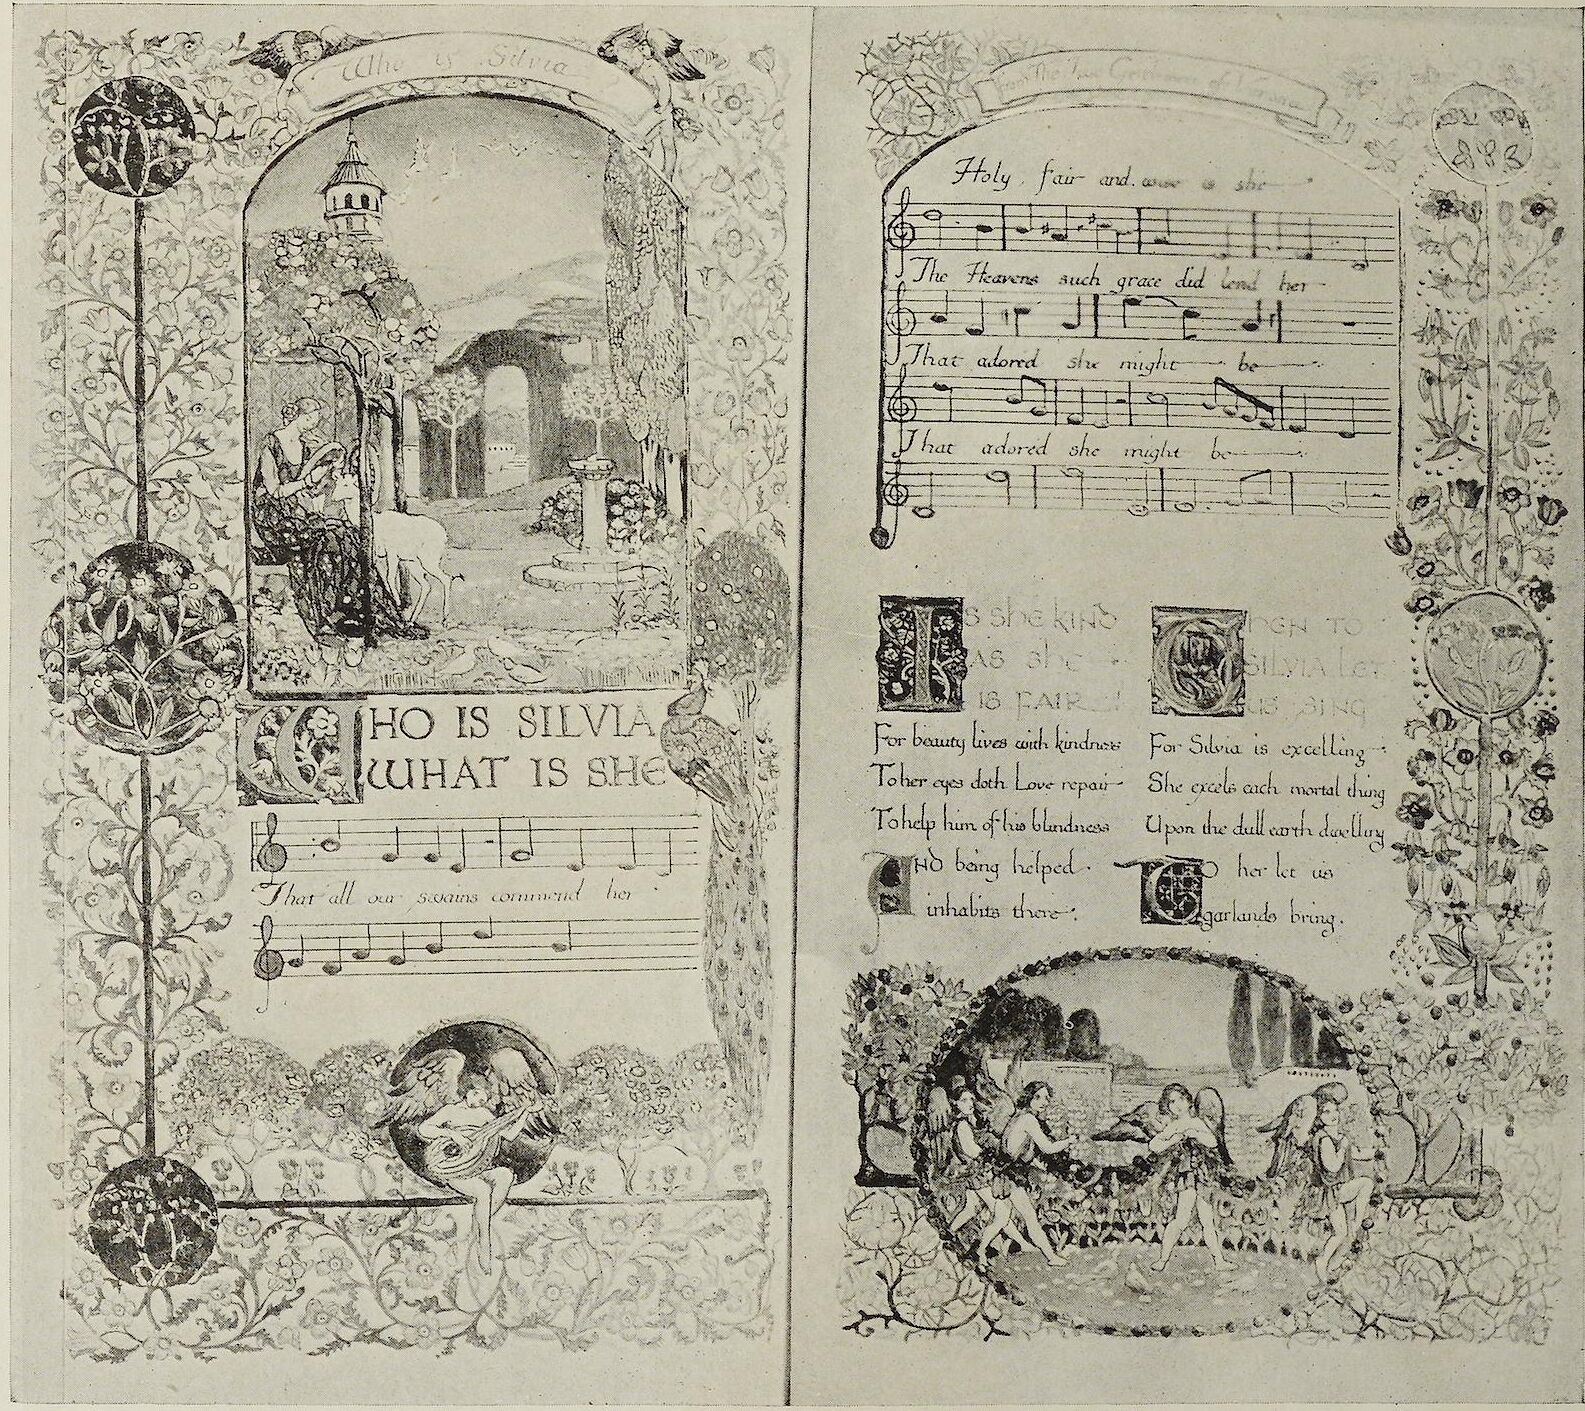 Who is Silvia
WHO IS SILVIA
WHAT IS SHE
That all our swains commend her
From the Two
Holy, fair and wise is she
The Heavens such grace did lend her
That adored she might be
That adored she might be
IS SHE KIND
AS She
IS FAIR
For beauty lives with kindness
To her eyes doth Love repair
To help him of his blindness
AND being helped
inhabits there.
THEN TO
SILVIA LET
US SING
For Silvia is excelling
She excels each mortal thing
Upon the dull earth dwelling
TO her let us
garlands bring.